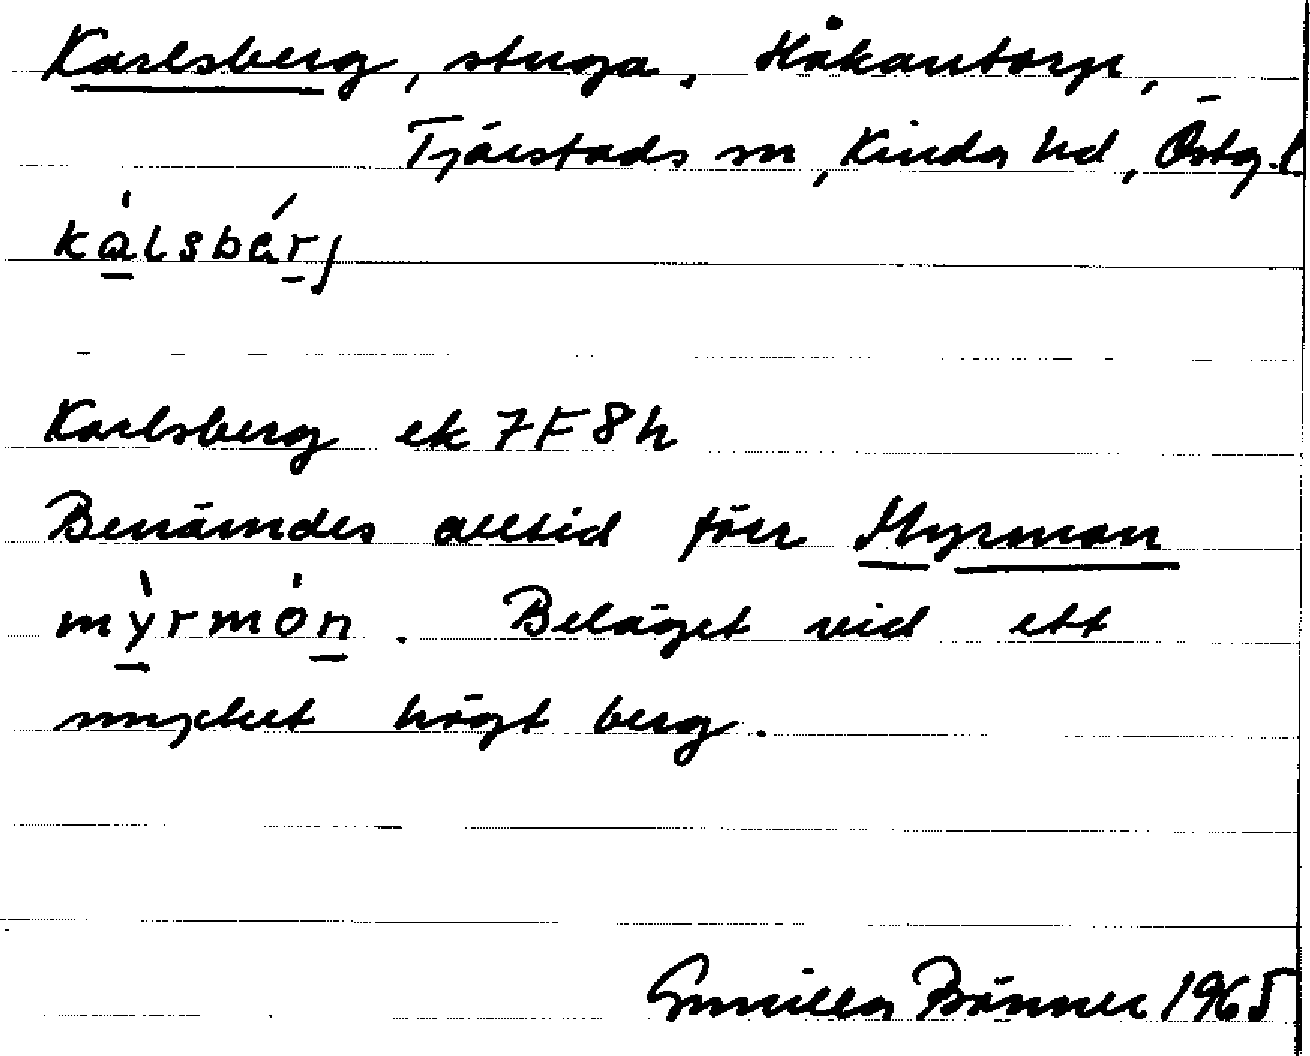 Karlsberg, stuga. Håkantorp,
Tjärstads sn, Kinda hd, Östg.l
kálsbérj
Karlsberg ek 7F8h
Benämdes alltid förr Myrmon
mỳrmón. Beläget vid ett
mycket högt berg.
Gunilla Bänner 1965